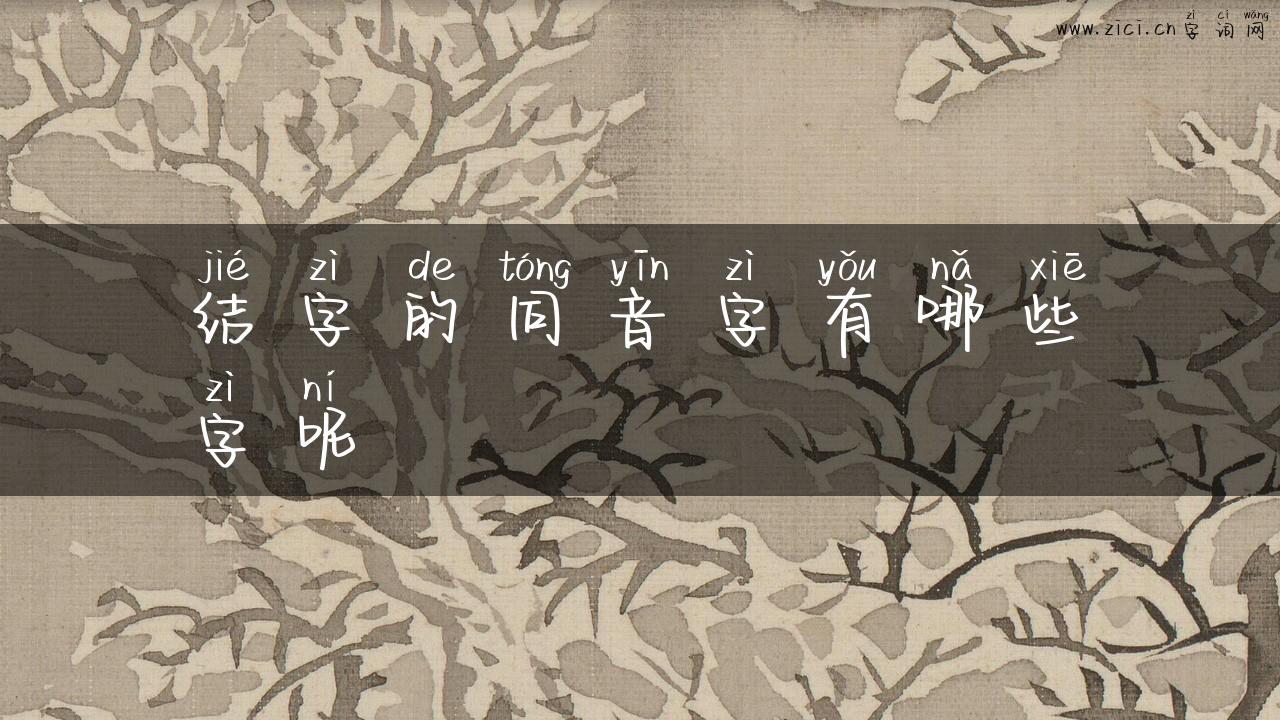 zì cí wǎng
www.zici.cn字词网
jié zì de tóng yīn zì yǒu nǎ xiē
结字的同音字有哪些
zì ní
字呢